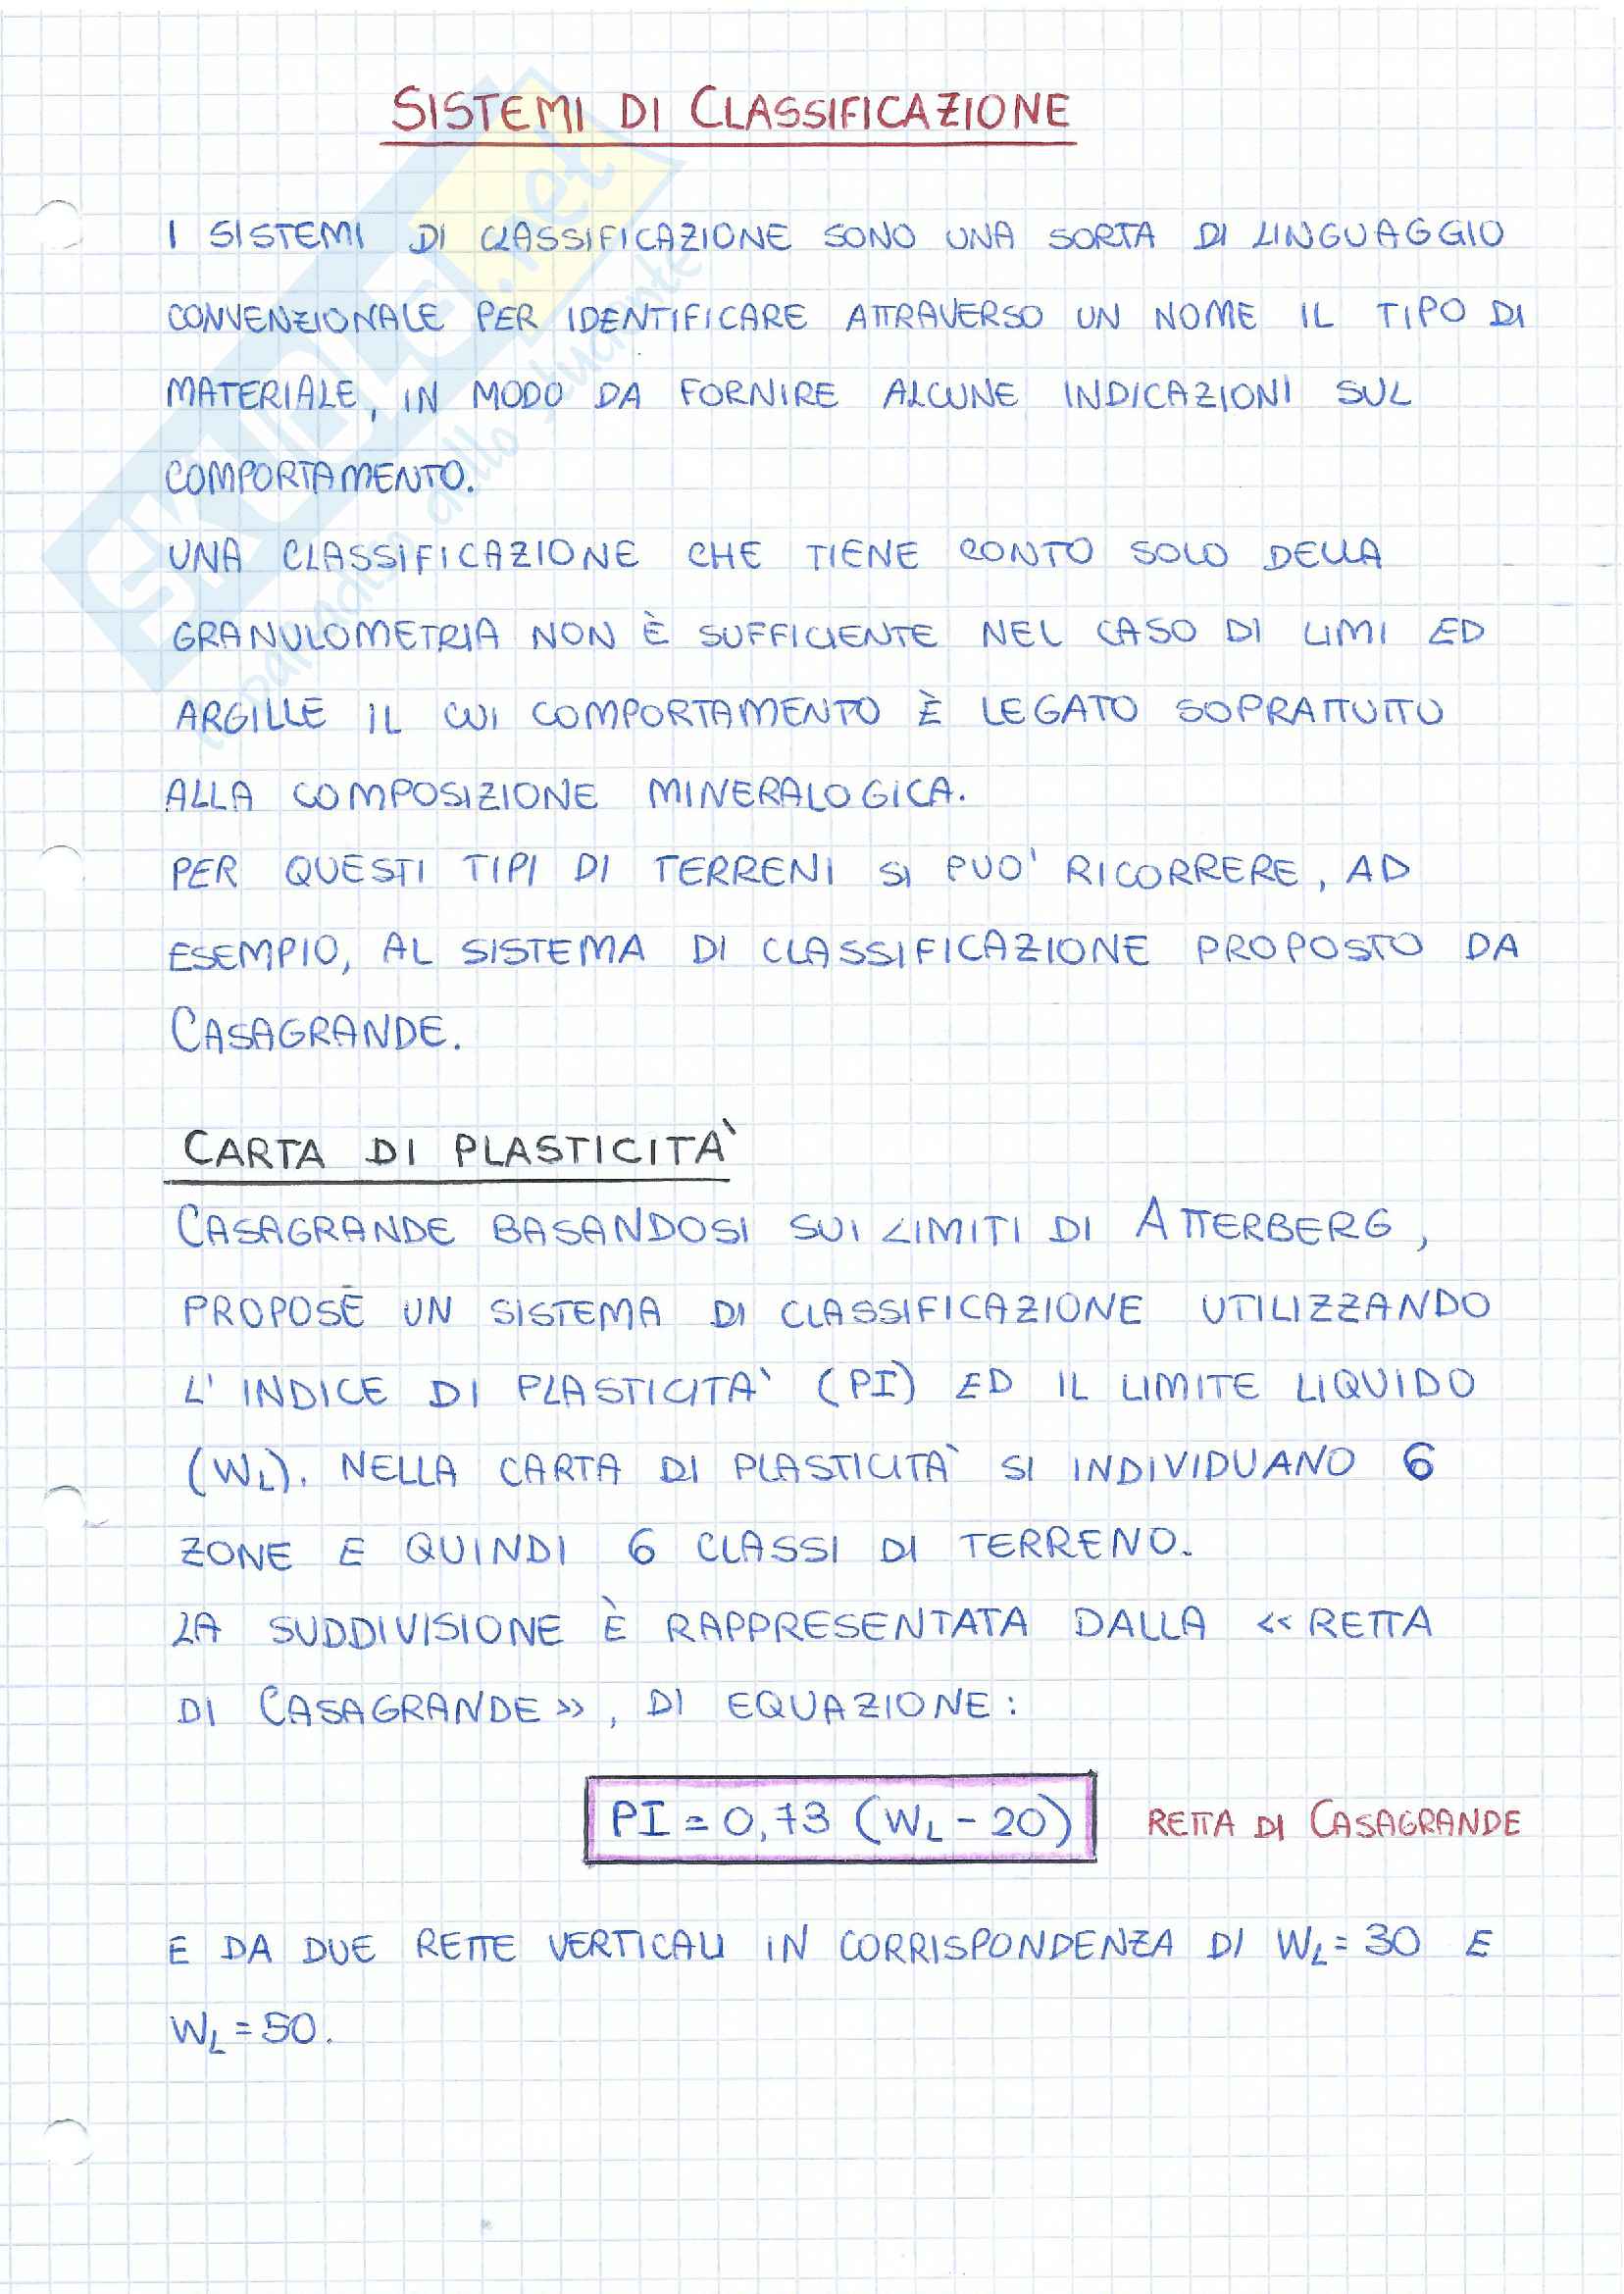 SISTEMI DI CLASSIFICAZIONE
I SISTEMI DI CLASSIFICAZIONE SONO UNA SORTA DI LINGUAGGIO
CONVENZIONALE PER IDENTIFICARE ATTRAVERSO UN NOME IL TIPO DI
MATERIALE, IN MODO DA FORNIRE ALCUNE INDICAZIONI SUL
COMPORTAMENTO.
UNA CLASSIFICAZIONE CHE TIENE CONTO SOLO DELLA
GRANULOMETRIA NON È SUFFICIENTE NEL CASO DI LIMI ED
ARGILLE IL CUI COMPORTAMENTO È LEGATO SOPRATTUTTO
ALLA COMPOSIZIONE MINERALOGICA.
PER QUESTI TIPI DI TERRENI SI PUO' RICORRERE, AD
ESEMPIO, AL SISTEMA DI CLASSIFICAZIONE PROPOSTO DA
CASAGRANDE.
CARTA DI PLASTICITA`
CASAGRANDE BASANDOSI SUI LIMITI DI ATTERBERG,
PROPOSE UN SISTEMA DI CLASSIFICAZIONE UTILIZZANDO
L'INDICE DI PLASTICITA` (PI) ED IL LIMITE LIQUIDO
(WL). NELLA CARTA DI PLASTICITA` SI INDIVIDUANO 6
ZONE E QUINDI 6 CLASSI DI TERRENO.
LA SUDDIVISIONE È RAPPRESENTATA DALLA «RETTA
DI CASAGRANDE», DI EQUAZIONE:
PI = 0,73 (WL - 20) RETTA DI CASAGRANDE
E DA DUE RETTE VERTICALI IN CORRISPONDENZA DI WL = 30 E
WL = 50.
SKUOLA.net
il paradiso dello studente